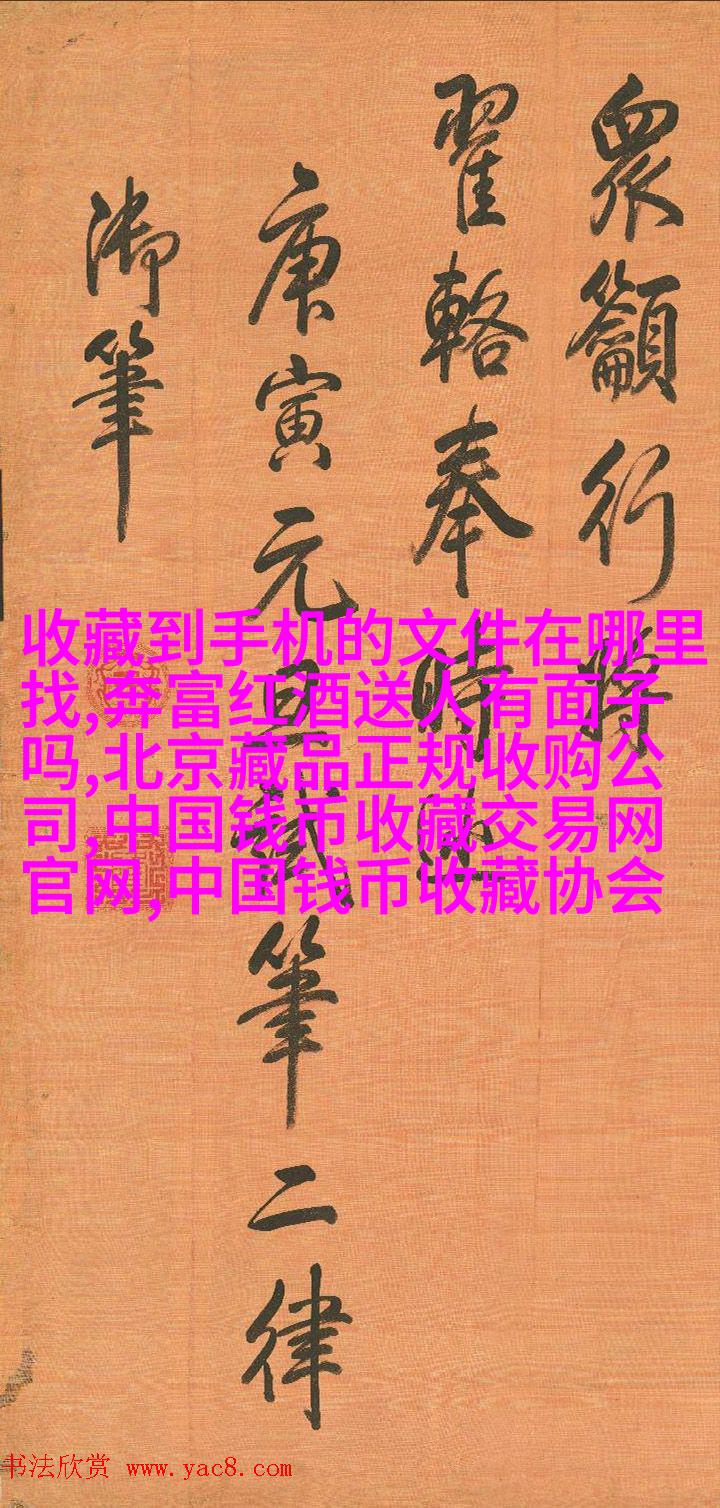 衆籲行將
翟輅奉時
庚寅元旦試筆二律
御筆
收藏到手机的文件在哪里
找,奔富红酒送人有面子
吗,北京藏品正规收购公
司,中国钱币收藏交易网
官网,中国钱币收藏协会
书法欣赏 www.yac8.com